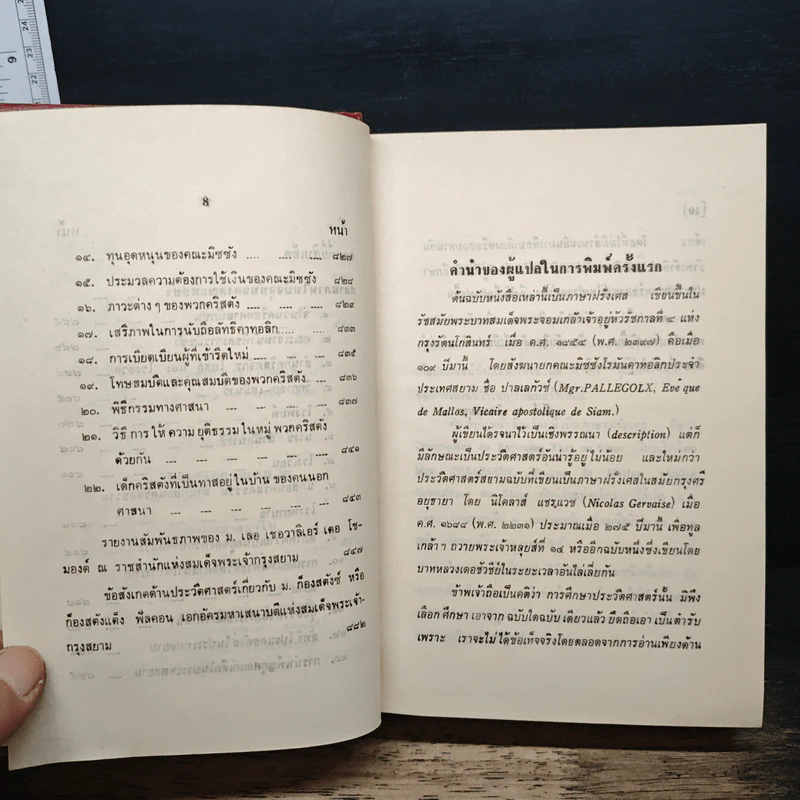 8
หน้า
๑๔. ทุนอุดหนุนของคณะมิซซัง .... .... .... ๘๒๗
๑๕. ประมวลความต้องการใช้เงินของคณะมิซซัง ๘๒๘
๑๖. ภาวะต่าง ๆ ของพวกคริสตัง .... .... ๘๒๙
๑๗. เสรีภาพในการนับถือลัทธิคาทอลิก..... .... ๘๓๓
๑๘. การเบียดเบียนผู้ที่เข้ารีตใหม่ .... .... .... ๘๓๕
๑๙. โทษสมบัติและคุณสมบัติของพวกคริสตัง .... ๘๓๖
๒๐. พิธีกรรมทางศาสนา .... .... .... .... ๘๓๗
๒๑. วิธีการให้ความยุติธรรมในหมู่พวกคริสตัง
ด้วยกัน .... .... .... .... .... ๘๔๑
๒๒. เด็กคริสตังที่เป็นทาสอยู่ในบ้านของคนนอก
ศาสนา .... .... .... .... .... ๘๔๓
รายงานสัมพันธภาพของ ม. เลอ เชอวาลิเอร์ เดอ โช-
มองต์ ณ ราชสำนักแห่งสมเด็จพระเจ้ากรุงสยาม ๘๔๗
ข้อสังเกตด้านประวัติศาสตร์เกี่ยวกับ ม. ก็องสตังซ์ หรือ
ก็องสตังแต็ง ฟัลคอน เอกอัครมหาเสนาบดีแห่งสมเด็จพระเจ้า-
กรุงสยาม ๘๘๒
คำนำของผู้แปลในการพิมพ์ครั้งแรก
ต้นฉบับหนังสือเหล่านี้เป็นภาษาฝรั่งเศส เขียนขึ้นใน
รัชสมัยพระบาทสมเด็จพระจอมเกล้าเจ้าอยู่หัวรัชกาลที่ ๔ แห่ง
กรุงรัตนโกสินทร์ เมื่อ ค.ศ. ๑๘๕๔ (พ.ศ. ๒๓๙๗) คือเมื่อ
๑๐๙ ปีมานี้ โดยสังฆนายกคณะมิซซังโรมันคาทอลิกประจำ
ประเทศสยาม ชื่อ ปาลเลกัวซ์ (Mgr.PALLEGOLX, Evê que
de Mallos, Vicaire apostolique de Siam.)
ผู้เขียนได้รจนาไว้เป็นเชิงพรรณนา (description) แต่ก็
มีลักษณะเป็นประวัติศาสตร์อันน่ารู้อยู่ไม่น้อย และใหม่กว่า
ประวัติศาสตร์สยามฉบับที่เขียนเป็นภาษาฝรั่งเศสในสมัยกรุงศรี
อยุธยา โดย นิโคลาส์ แชรแวซ (Nicolas Gervaise) เมื่อ
ค.ศ. ๑๖๘๘ (พ.ศ. ๒๒๓๑) ประมาณเมื่อ ๒๗๕ ปีมานี้ เพื่อทูล
เกล้าฯ ถวายพระเจ้าหลุยส์ที่ ๑๔ หรืออีกฉบับหนึ่งซึ่งเขียนโดย
บาทหลวงเตอชัวซีย์ในระยะเวลาอันไล่เลี่ยกัน
ข้าพเจ้าถือเป็นคติว่า การศึกษาประวัติศาสตร์นั้น มิพึง
เลือกศึกษาเอาจากฉบับใดฉบับเดียวแล้วยึดถือเอาเป็นตำรับ
เพราะ เราจะไม่ได้ข้อเท็จจริงโดยตลอดจากการอ่านเพียงด้าน